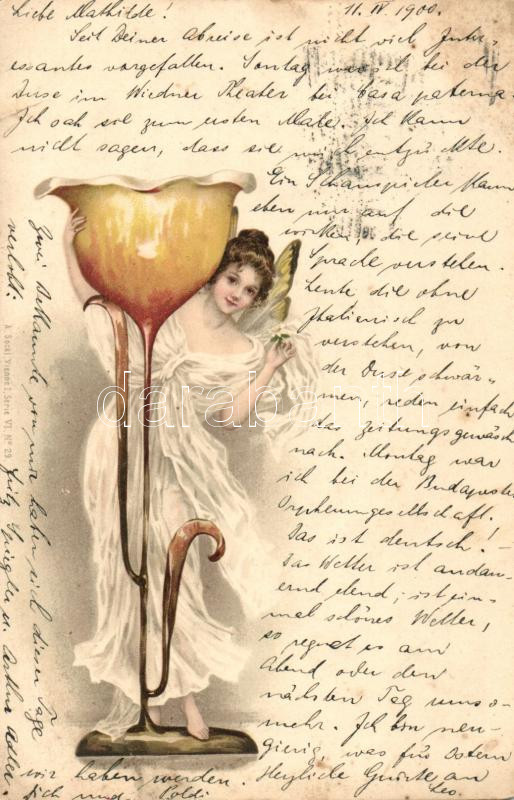 Liebe Mathilde! 11. IV. 1900.
Seit Deiner Abreise ist nicht viel Inter-
essantes vorgefallen. Sontag war ich bei der
Duse im Wiedner Theater bei Casa paterna.
Ich sah sie zum ersten Male. Ich kann
nicht sagen, dass sie mich entzückte.
Ein Schauspieler kann
eben nur auf die
wirken, die seine
Sprache verstehen.
Leute die ohne
Italienisch zu
verstehen, von
der Duse schwär-
men, reden einfach
das Zeitungsgewäsch
nach. Montag war
ich bei der Budapester
Orpheumgesellschaft.
Das ist deutsch! –
Das Wetter ist andau-
ernd elend; ist ein-
mal schönes Wetter,
so regnet es am
Abend oder den
nächsten Tag umso-
mehr. Ich bin neu-
gierig, was für Ostern
wir haben werden. Herzliche Grüße an
Dich und Poldi Leo.
Zwei Bekannte von mir haben sich dieser Tage
verlobt: Fritz Spiegler u. Arthur Adler.
A. Sockl, Vienne I, Serie VI. Nº 29.
darabanth